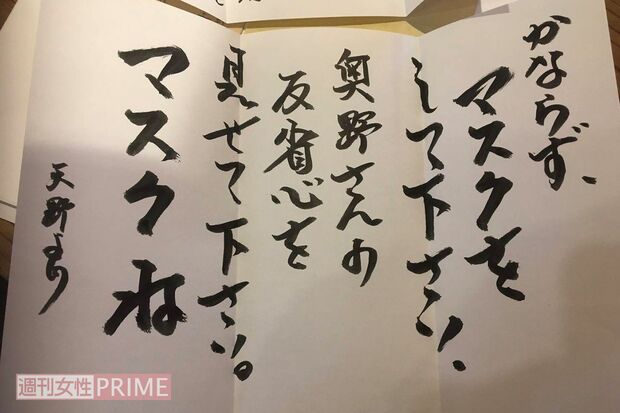 かならず、
マスクを
して下さい、
奥野さんの
反省心を
見せて下さい。
マスクね
天野より
週刊女性PRIME